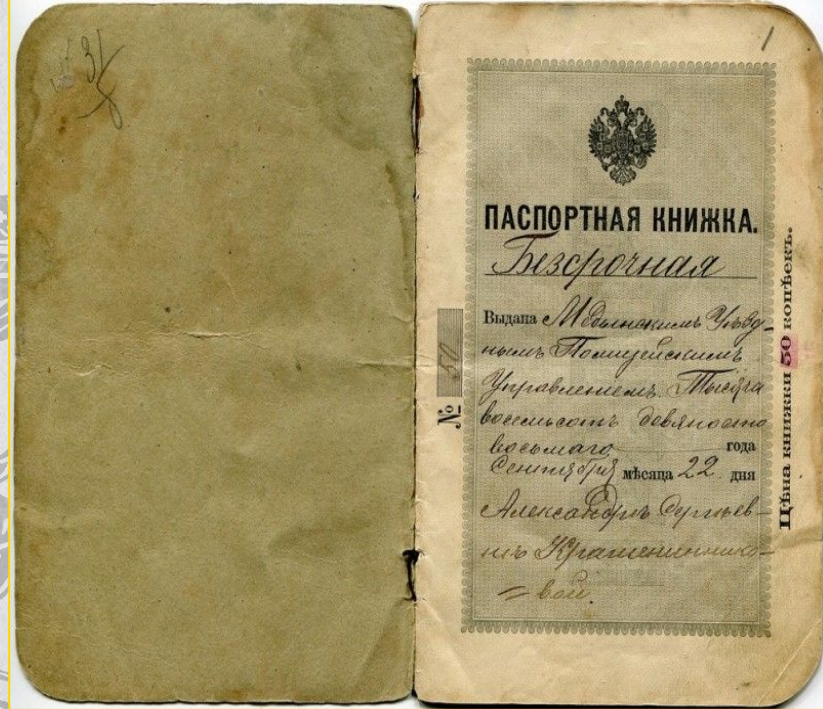 31/8
1
ПАСПОРТНАЯ КНИЖКА.
Безсрочная
Выдана Медынскимъ Уѣзд-
нымъ Полицейскимъ
Управленiемъ. Тысяча
восемьсотъ девяносто
восьмаго года
Сентября мѣсяца 22 дня
Александрѣ
Крашениннико-
= вой.
№ 50
Цѣна книжки 50 копѣекъ.